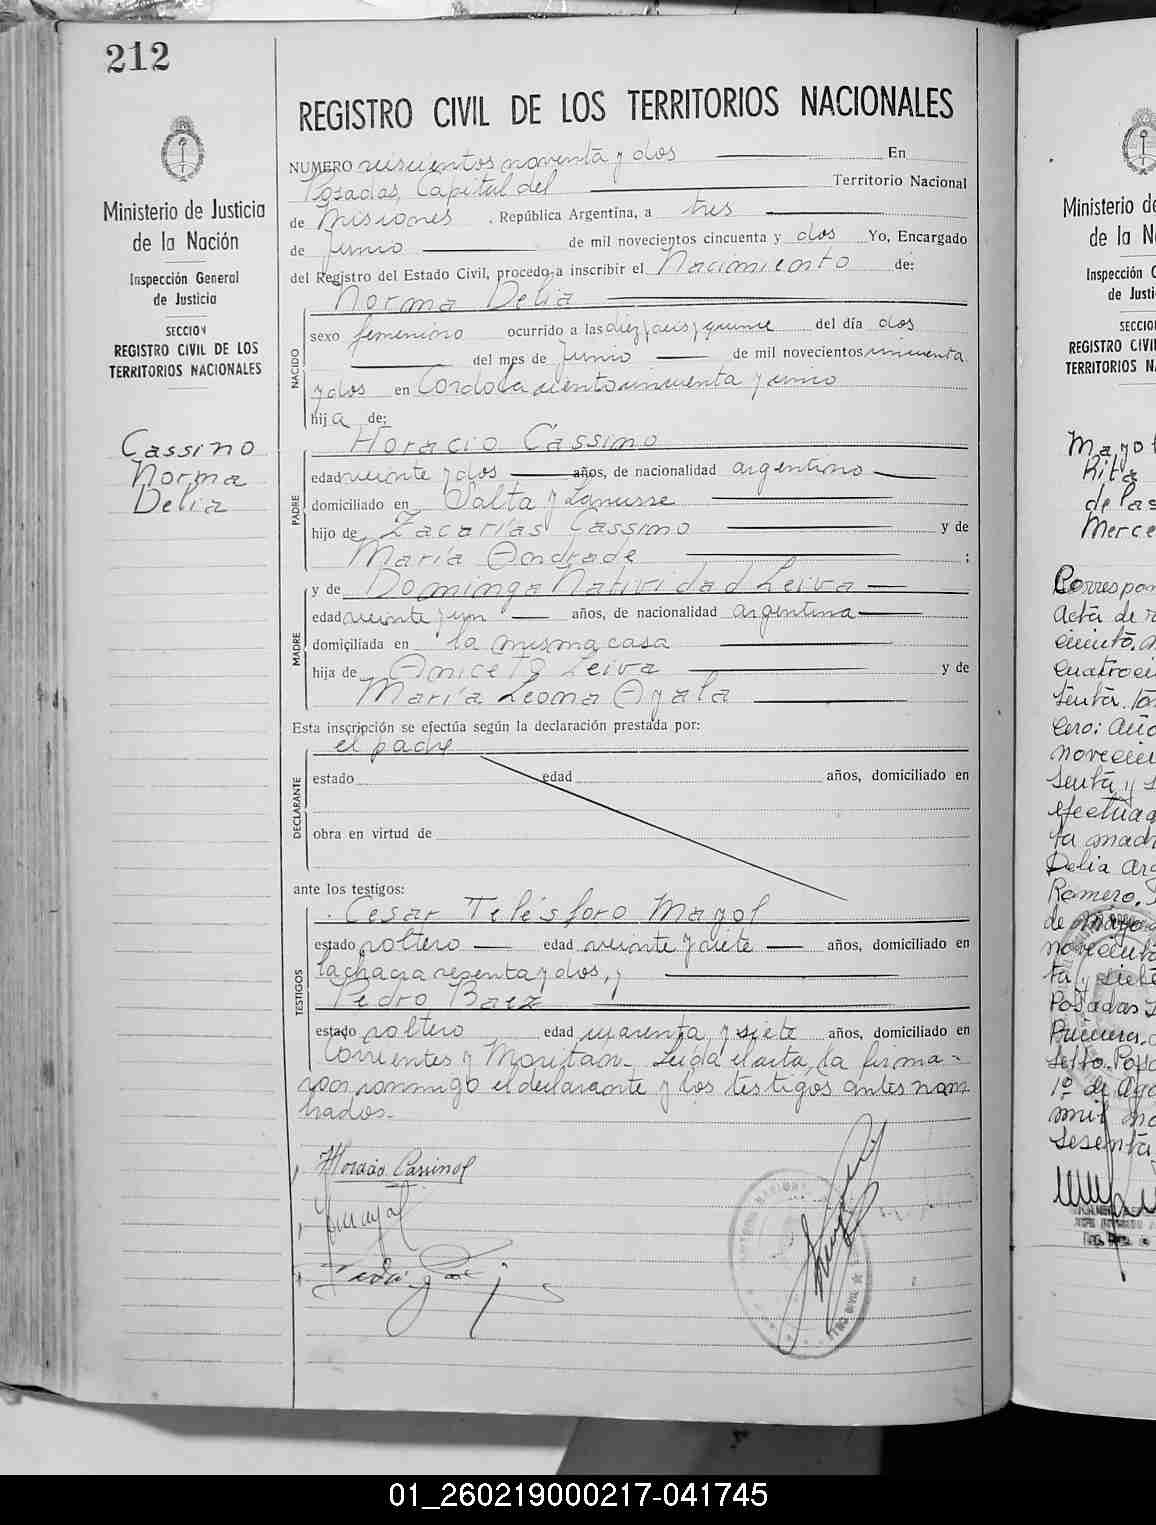 212
REGISTRO CIVIL DE LOS TERRITORIOS NACIONALES
Ministerio de Justicia
de la Nación
Inspección General
de Justicia
SECCION
REGISTRO CIVIL DE LOS
TERRITORIOS NACIONALES
Cassino
Norma
Delia
NUMERO noventa y dos En
Posadas, Capital del Territorio Nacional
de Misiones . República Argentina, a tres
de Junio de mil novecientos cincuenta y dos Yo, Encargado
del Registro del Estado Civil, procedo a inscribir el Nacimiento de:
Norma Delia
NACIDO
sexo femenino ocurrido a las diez y seis y quince del día dos
del mes de Junio de mil novecientos cincuenta
y dos en Cordoba ciento cincuenta y cinco
hija de:
Horacio Cassino
PADRE
edad veinte y dos años, de nacionalidad argentino
domiciliado en Salta y Lanusse
hijo de Zacarías Cassino y de
María Andrade ;
y de Dominga Natividad Leiva
MADRE
edad veinte y un años, de nacionalidad argentina
domiciliada en la misma casa
hija de Aniceto Leiva y de
María Leona Ayala
Esta inscripción se efectúa según la declaración prestada por:
el padre
DECLARANTE
estado edad años, domiciliado en
obra en virtud de
ante los testigos:
Cesar Telésforo Mayol
TESTIGOS
estado soltero edad veinte y siete años, domiciliado en
la chacra sesenta y dos, y
Pedro Baez
estado soltero edad cuarenta y siete años, domiciliado en
Corrientes y Leida el acta, la firma-
ron conmigo el declarante y los testigos antes nom
brados.-
Horacio Cassino
Ministerio de
de la N
Inspección G
de Justi
SECCIO
REGISTRO CIVIL
TERRITORIOS N
Mayo
Rita
de Pas
Merce
Correspon
acta de n
ciento
cuatroci
tenta
cero: año
novecien
senta y s
efectuad
la madr
Delia
Romero
de Mayo
novecien
ta y siete
Posadas
Primera
1º de Ago
mil no
sesenta
01_260219000217-041745